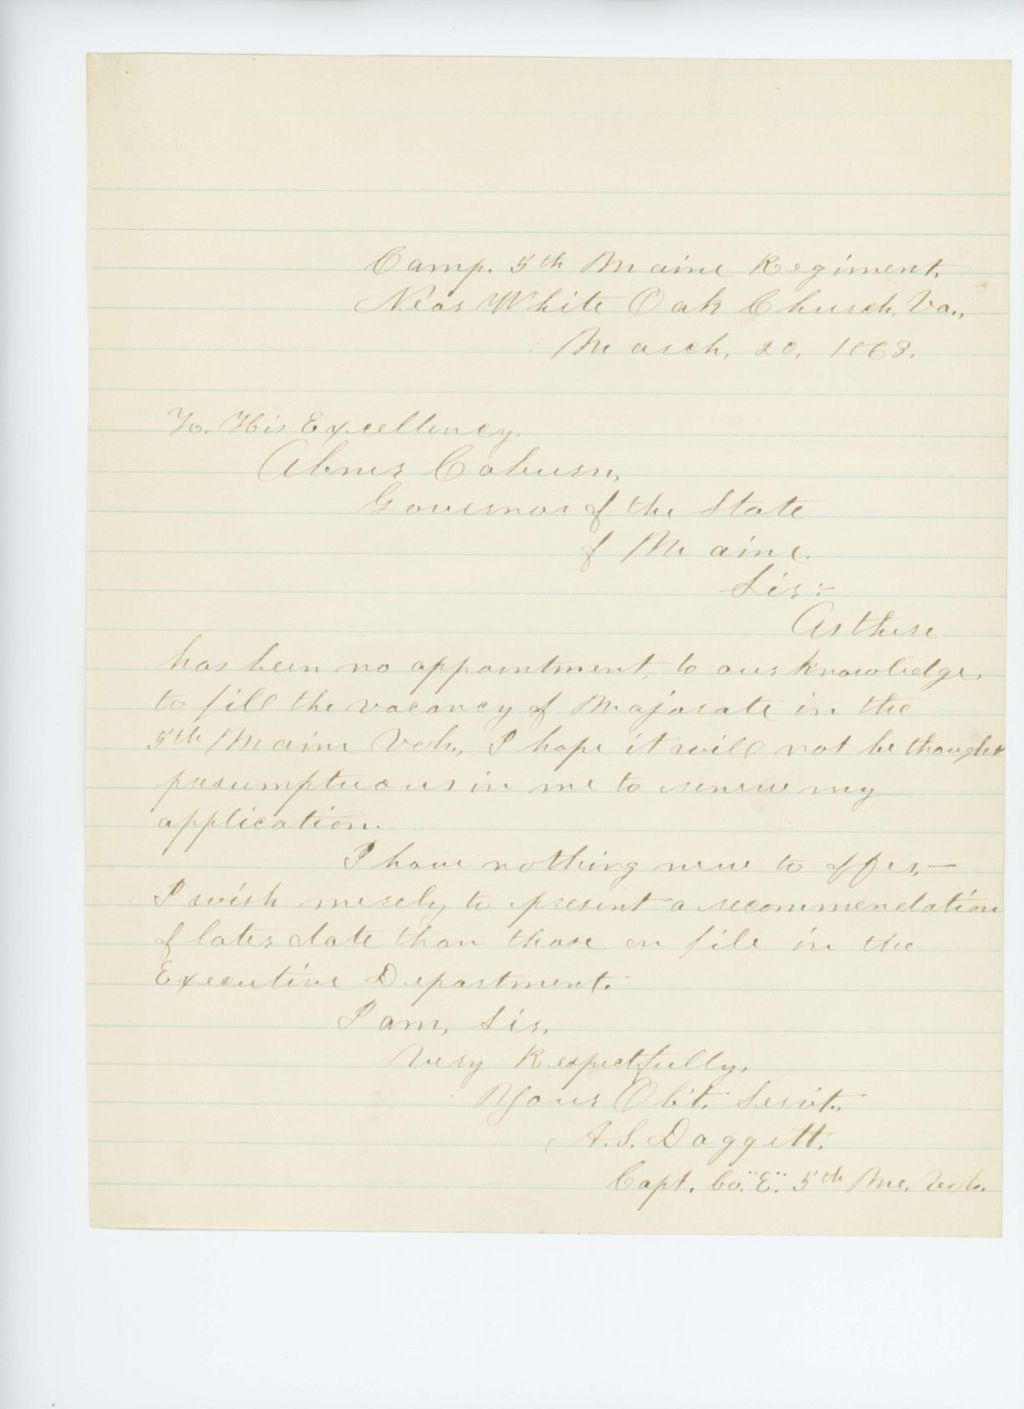 Camp. 5th Maine Regiment,
Near White Oak Church, Va.,
March, 20, 1863.
To. His Excellency.
Abner Coburn,
Governor of the State
of Maine.
Sir:-
As there
has been no appointment, to our knowledge,
to fill the vacancy of Majorate in the
5th Maine Vols., I hope it will not be thought
presumptuous in me to renew my
application.
I have nothing new to offer,—
I wish merely to present a recommendation
of later date than those on file in the
Executive Department.
I am, Sir,
Very Respectfully,
Your Obt. Servt.,
A. S. Daggett.
Capt. Co. "E." 5th Me. Vols.